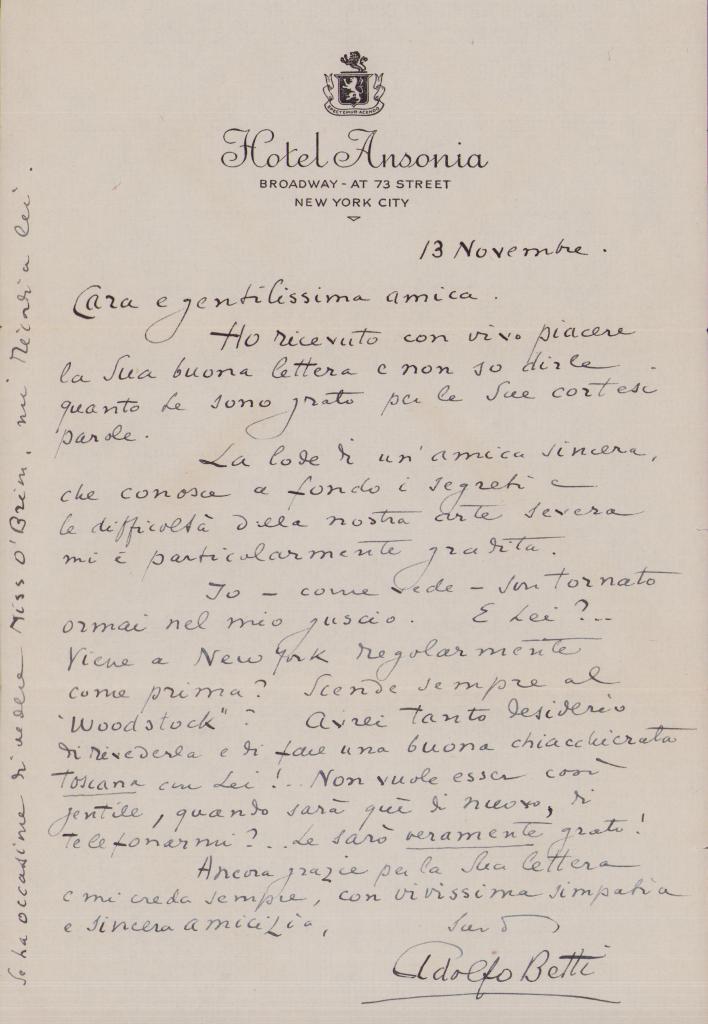 Hotel Ansonia
BROADWAY - AT 73 STREET
NEW YORK CITY
13 Novembre.
Cara e gentilissima amica.
Ho ricevuto con vivo piacere
la Sua buona lettera e non so dirle
quanto Le sono grato per le Sue cortesi
parole.
La lode di un'amica sincera,
che conosce a fondo i segreti e
le difficoltà della nostra arte severa
mi è particolarmente gradita.
Io - come vede - son tornato
ormai nel mio guscio. E Lei?..
Viene a New York regolarmente
come prima? Scende sempre al
"Woodstock"? Avrei tanto desiderio
di rivederla e di fare una buona chiacchierata
toscana con Lei!.. Non vuole esser così
gentile, quando sarà qui di nuovo, di
telefonarmi?.. Le sarò veramente grato!
Ancora grazie per la Sua lettera
e mi creda sempre, con vivissima simpatia
e sincera amicizia,
Adolfo Betti
Se ha occasione di vedere Miss O'Brien, mi ricordi a lei.